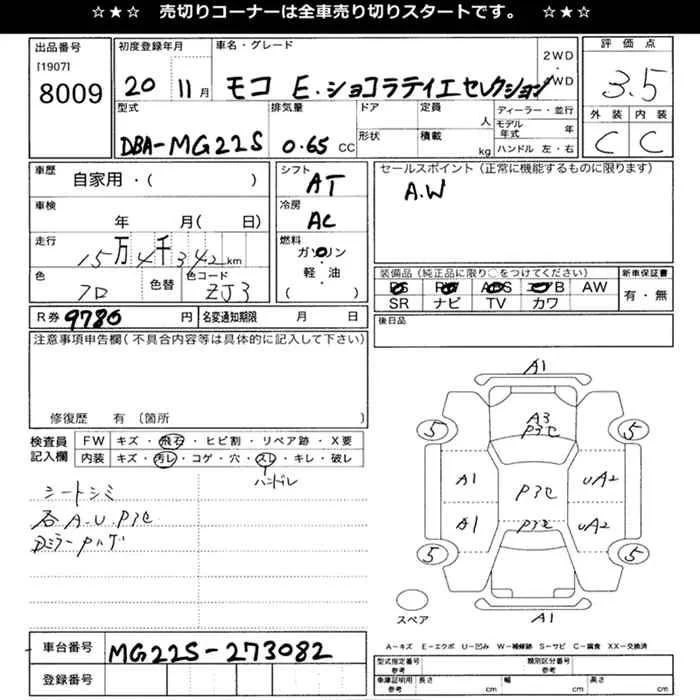 ☆★☆ 売切りコーナーは全車売り切りスタートです。 ☆★☆
出品番号
[1907]
8009
初度登録年月
20 11月
車名・グレード
モコ E.ショコラティエセレクション
2WD
・
4WD
評価点
3.5
外装 内装
C C
型式
DBA-MG22S
排気量
0.65 CC
ドア
形状
定員 人
積載 kg
ディーラー・並行
モデル年式 年
ハンドル 左・右
車歴
自家用・( )
車検
年 月( 日)
走行
15万4千342km
色
色替
色コード
ZJ3
シフト
AT
冷房
AC
燃料
ガソリン
・
軽・油
( )
セールスポイント(正常に機能するものに限ります)
A.W
装備品(純正品に限り○をつけてください)
PS PW ABS エアB AW
SR ナビ TV カワ
新車保証書
有・無
後日品
R券 9780 円
名変通知期限 月 日
注意事項申告欄(不具合内容等は具体的に記入して下さい)
修復歴 有(箇所 )
検査員記入欄
FW キズ・飛石・ヒビ割・リペア跡・X要
内装 キズ・汚レ・コゲ・穴・スレ・キレ・破レ
ハンドル
シートシミ
各A.U.P3セ
A1
A3
P3セ
5 5
A1 P3セ UA2
A1 P3セ UA2
5 5
スペア
A1
A-キズ E-エクボ U-凹み W-補修跡 S-サビ C-腐食 XX-交換済
車台番号 MG22S-273082
登録番号
型式指定番号
参考
類別区分番号
参考
車庫証明用
参考
長さ cm
幅 cm
高さ cm